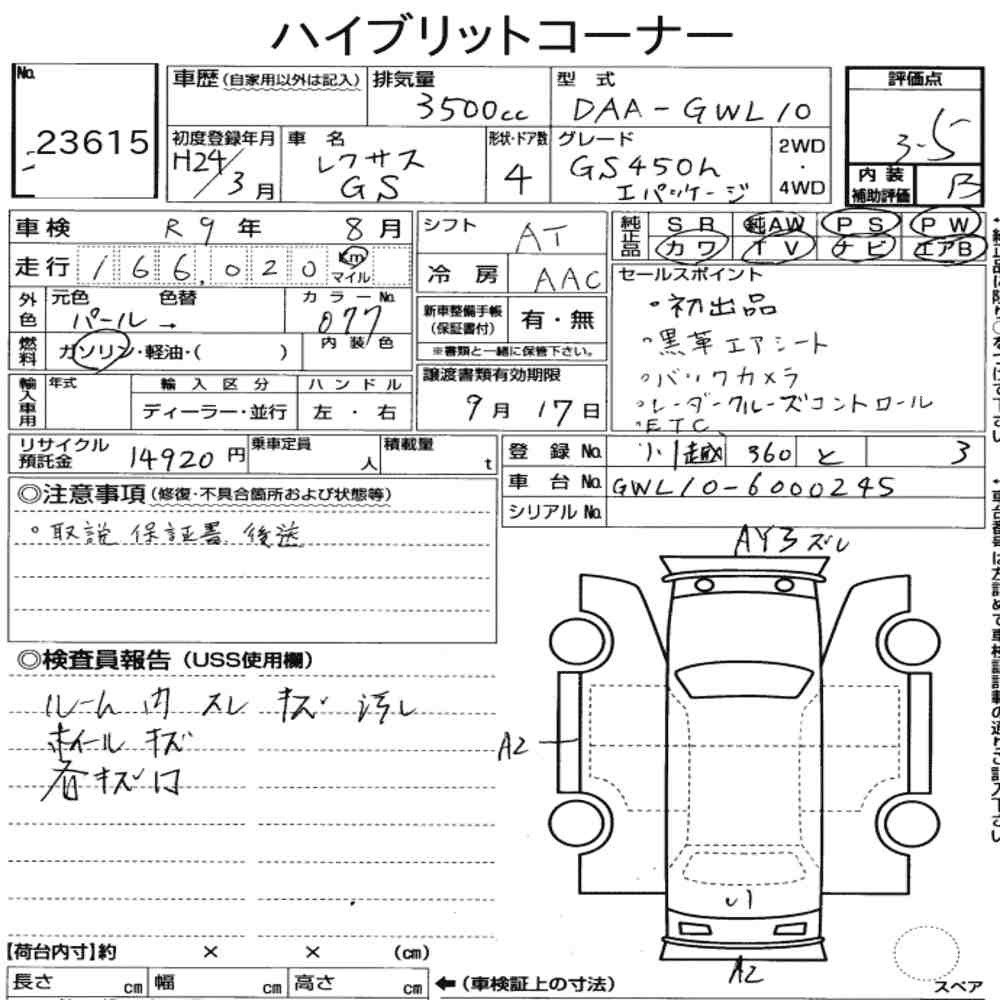 ハイブリットコーナー
No.
23615
車歴(自家用以外は記入)
排気量
3500cc
型式
DAA-GWL10
評価点
3.5
初度登録年月
H24/3月
車名
レクサス
GS
形状・ドア数
4
グレード
GS450h
Iパッケージ
2WD
・
4WD
内装
補助評価
B
車検 R9年 8月
走行 166,020 Km
マイル
シフト AT
冷房 AAC
純正品
SR 純AW PS PW
カワ TV ナビ エアB
外色
元色 色替 カラーNo.
パール→ 077
内装色
燃料
ガソリン・軽油・( )
新車整備手帳
(保証書付)
有・無
※書類と一緒に保管下さい。
セールスポイント
・初出品
・黒革エアシート
・バックカメラ
・レーダークルーズコントロール
・ETC
輸入車用
年式 輸入区分 ハンドル
ディーラー・並行 左・右
譲渡書類有効期限
9月17日
リサイクル
預託金 14920円
乗車定員 人
積載量 t
登録No. 川越 360 と 3
車台No. GWL10-6000245
シリアルNo.
◎注意事項(修復・不具合箇所および状態等)
・取説 保証書 後送
◎検査員報告(USS使用欄)
ルーム内 スレ キズ 汚レ
ホイール キズ
各キズ凹
AY3ズレ
A2
U1
A2
【荷台内寸】約 × × (cm)
長さ cm 幅 cm 高さ cm
←(車検証上の寸法)
スペア